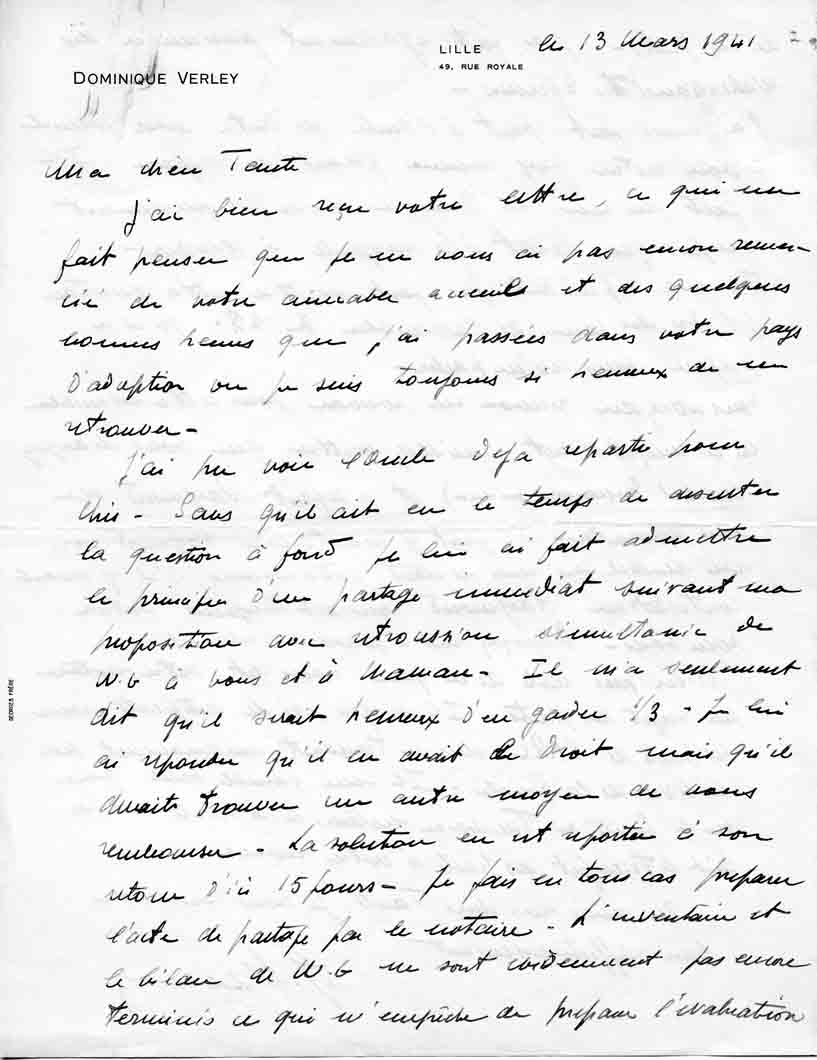 LILLE le 13 Mars 1941
49, RUE ROYALE
DOMINIQUE VERLEY
Ma chère Tante
J'ai bien reçu votre lettre, ce qui me
fait penser que je ne vous ai pas encore remer-
cié de votre aimable accueil et des quelques
bonnes heures que j'ai passées dans votre pays
d'adoption où je suis toujours si heureux de me
retrouver -
J'ai pu voir l'Oncle déjà reparti pour
- Sans qu'il ait eu le temps de discuter
la question à fond je lui ai fait admettre
le principe d'un partage immédiat suivant ma
proposition avec rétrocession simultanée de
W.G à vous et à Maman - Il m'a seulement
dit qu'il serait heureux d'en garder 1/3 - Je lui
ai répondu qu'il en avait le droit mais qu'il
devait trouver un autre moyen de vous
rembourser - La solution en est reportée à son
retour d'ici 15 jours - Je fais en tous cas préparer
l'acte de partage par le notaire - L'inventaire et
le bilan de W.G ne sont évidemment pas encore
terminés ce qui m'empêche de préparer l'évaluation
GEORGES FRÈRE